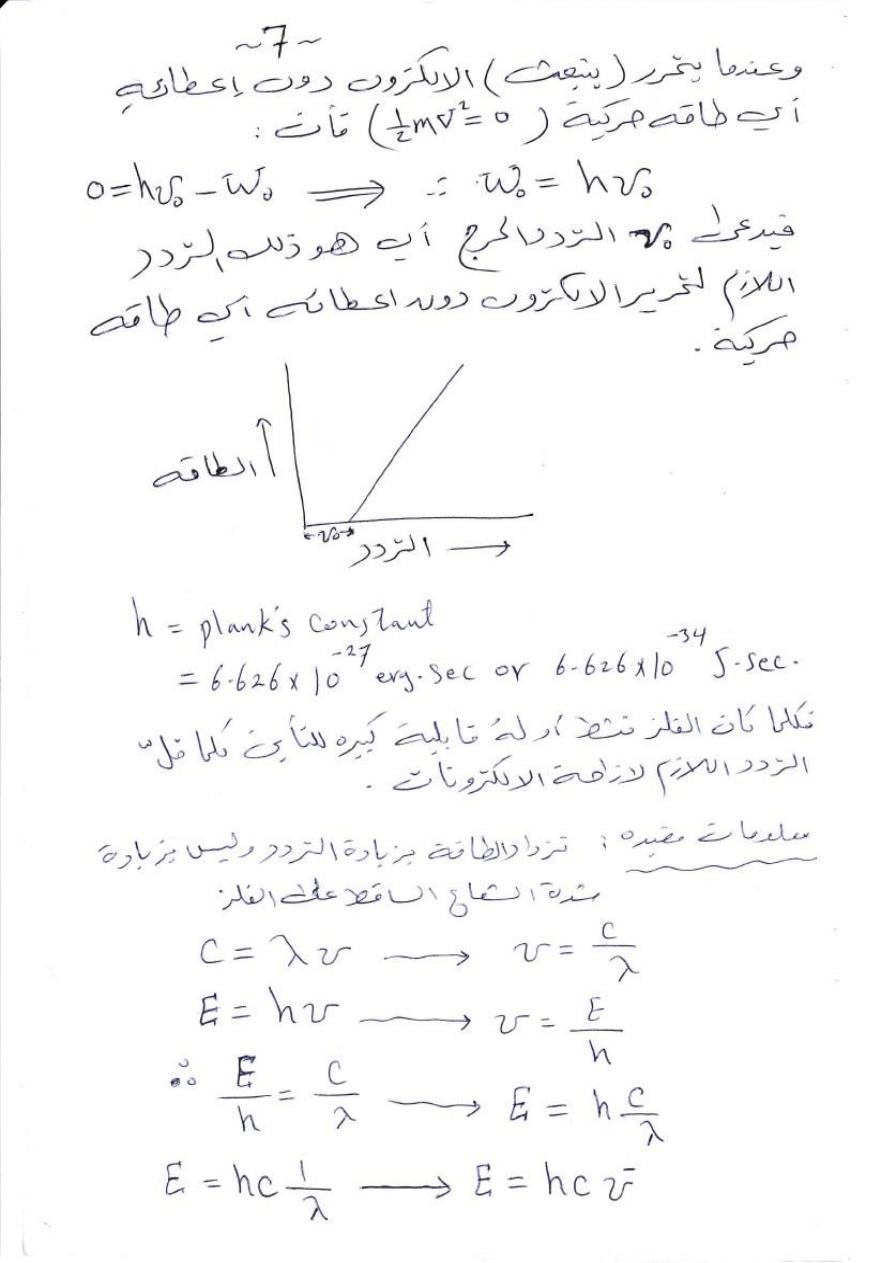 ~7~
وعندما يتحرر (ينبعث) الالكترون دون إعطائهِ
أي طاقه حركية (½mv²=0) فأن :
0=hv₀-W₀ ⟹ ∴ W₀ = hv₀
فيدعى v₀ التردد الحرج أي هو ذلك التردد
اللازم لتحرير الالكترون دون اعطائه اي طاقه
حركية .
الطاقه ↑
←v₀→
التردد →
h = plank's constant
= 6.626 x 10⁻²⁷ erg.sec or 6.626 x 10⁻³⁴ J.sec.
فكلما كان الفلز نشط أو لهُ قابلية كبيره للتأين كلما قلّ
التردد اللازم لازاحة الالكترونات .
معلومات مفيده : تزداد الطاقة بزيادة التردد وليس بزيادة
شدة الشعاع الساقط على الفلز
C = λv → v = C/λ
E = hv → v = E/h
∴ E/h = C/λ → E = h C/λ
E = hc 1/λ → E = hc v̄